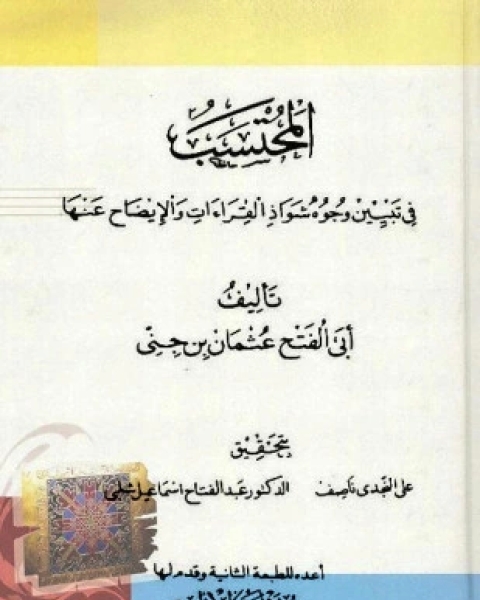 المُحْتَسَبُ
فِي تَبْيِيْنِ وُجُوْهِ شَوَاذِ القِرَاءَاتِ وَالإيضَاحِ عَنْهَا
تَألِيْفُ
أبي الفَتْح عُثْمَان بن جِنّى
بتحقيق
على النجدى ناصف الدكتور عبد الفتاح اسماعيل شلبي
أعده للطبعة الثانية وقدم لها